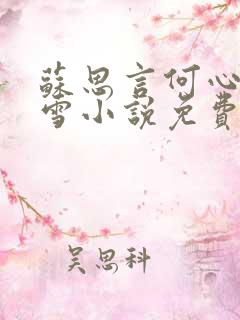 蘇思言何心
雪小說免費
吴思科